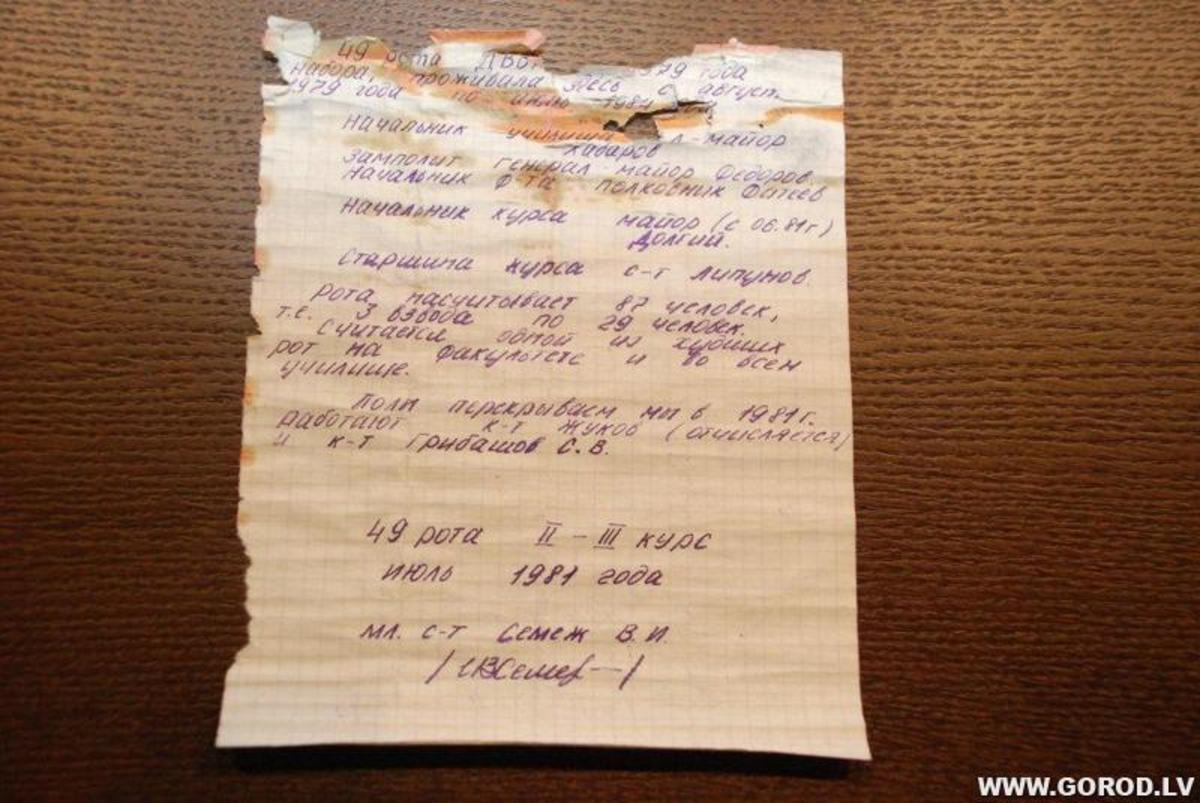 49 рота ДВВ 1979 года
набора, проживала здесь с август
1979 года по июль 1984
Начальник училища л-майор
Хабаров
Замполит генерал-майор Федоров
Начальник ф та полковник Фатеев
Начальник курса майор (с 06.81г)
Долгий.
Старшина курса с-т Липунов.
Рота насчитывает 87 человек,
т.е. 3 взвода по 29 человек.
Считается одной из худших
рот на факультете и во всем
училище.
Полы перекрываем мы в 1981г.
Работают к-т Жуков (отчисляется)
и к-т Грибашов С.В.
49 рота II – III курс
июль 1981 года
мл. с-т Семеж В.И.
WWW.GOROD.LV